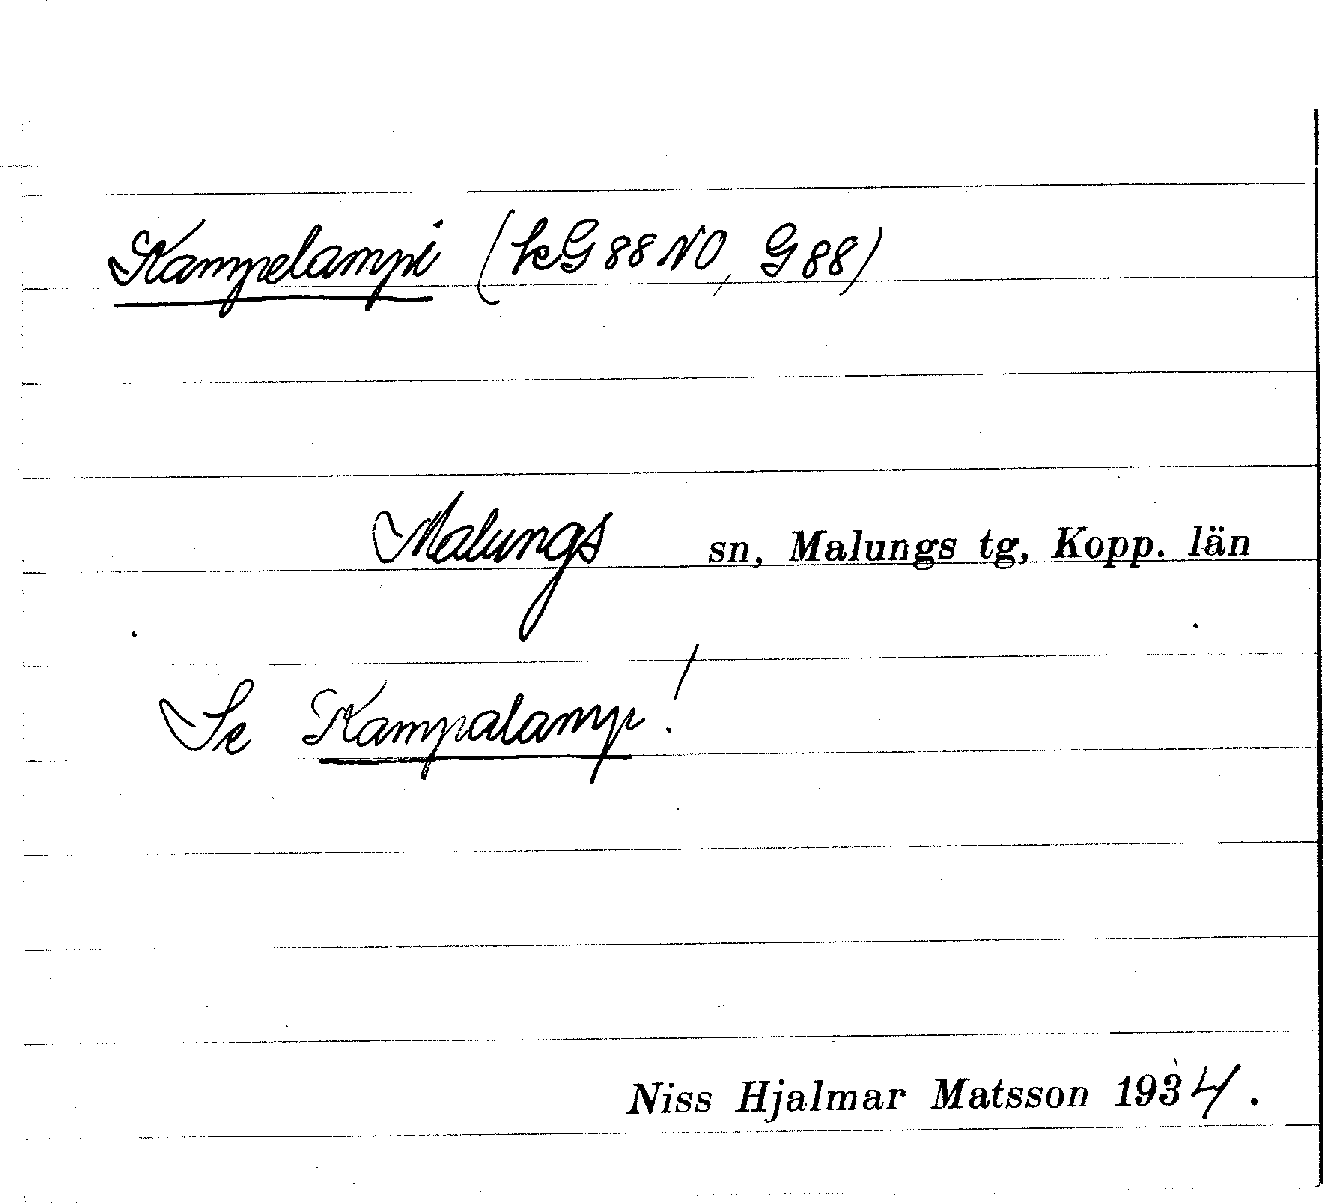 Kampelampi (keG88NO, G88)
Malungs sn, Malungs tg, Kopp. län
Se Kampalamp!
Niss Hjalmar Matsson 1934.